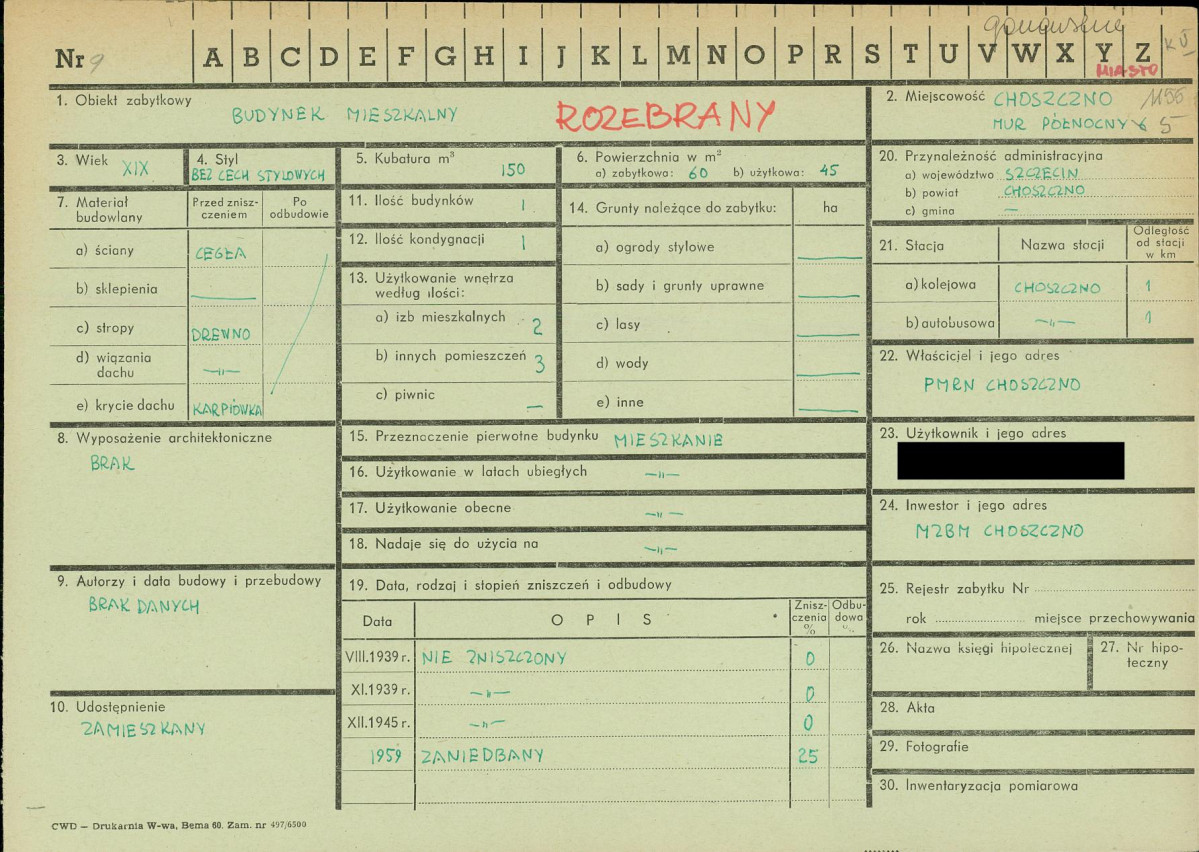 Nr 9 A B C D E F G H I J K L M N O P R S T U V W X Y Z
MIASTO
1. Obiekt zabytkowy
BUDYNEK MIESZKALNY ROZEBRANY
2. Miejscowość CHOSZCZNO 1155
MUR PÓŁNOCNY 5
3. Wiek XIX
4. Styl
BEZ CECH STYLOWYCH
5. Kubatura m³
150
6. Powierzchnia w m²
a) zabytkowa: 60 b) użytkowa: 45
7. Materiał budowlany
Przed znisz-
czeniem
Po
odbudowie
a) ściany CEGŁA
b) sklepienia —
c) stropy DREWNO
d) wiązania
dachu —„—
e) krycie dachu KARPIÓWKA
8. Wyposażenie architektoniczne
BRAK
9. Autorzy i data budowy i przebudowy
BRAK DANYCH
10. Udostępnienie
ZAMIESZKANY
11. Ilość budynków 1
12. Ilość kondygnacji 1
13. Użytkowanie wnętrza
według ilości:
a) izb mieszkalnych 2
b) innych pomieszczeń 3
c) piwnic —
14. Grunty należące do zabytku: ha
a) ogrody stylowe —
b) sady i grunty uprawne —
c) lasy —
d) wody —
e) inne —
15. Przeznaczenie pierwotne budynku MIESZKANIE
16. Użytkowanie w latach ubiegłych —„—
17. Użytkowanie obecne —„—
18. Nadaje się do użycia na —„—
19. Data, rodzaj i stopień zniszczeń i odbudowy
Data O P I S Znisz-
czenia
% Odbu-
dowa
%
VIII.1939 r. NIE ZNISZCZONY 0
XI.1939 r. —„— 0
XII.1945 r. —„— 0
1959 ZANIEDBANY 25
20. Przynależność administracyjna
a) województwo SZCZECIN
b) powiat CHOSZCZNO
c) gmina —
21. Stacja Nazwa stacji Odległość
od stacji
w km
a) kolejowa CHOSZCZNO 1
b) autobusowa —„— 1
22. Właściciel i jego adres
PMRN CHOSZCZNO
23. Użytkownik i jego adres
24. Inwestor i jego adres
MZBM CHOSZCZNO
25. Rejestr zabytku Nr
rok miejsce przechowywania
26. Nazwa księgi hipotecznej
27. Nr hipo-
teczny
28. Akta
29. Fotografie
30. Inwentaryzacja pomiarowa
CWD — Drukarnia W-wa, Bema 60. Zam. nr 497/6500